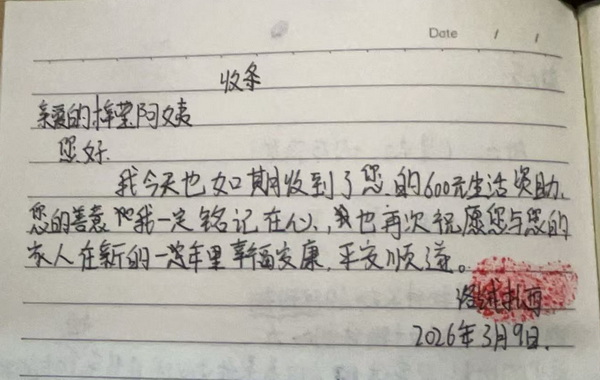 Date / /
收条
亲爱的梓莹阿姨
您好.
我今天也如期收到了您的600元生活资助.
您的善意 我一定铭记在心,我也再次祝愿您与您的
家人在新的一 年里幸福安康,平安顺遂。
洛绒扎西
2026年3月9日.